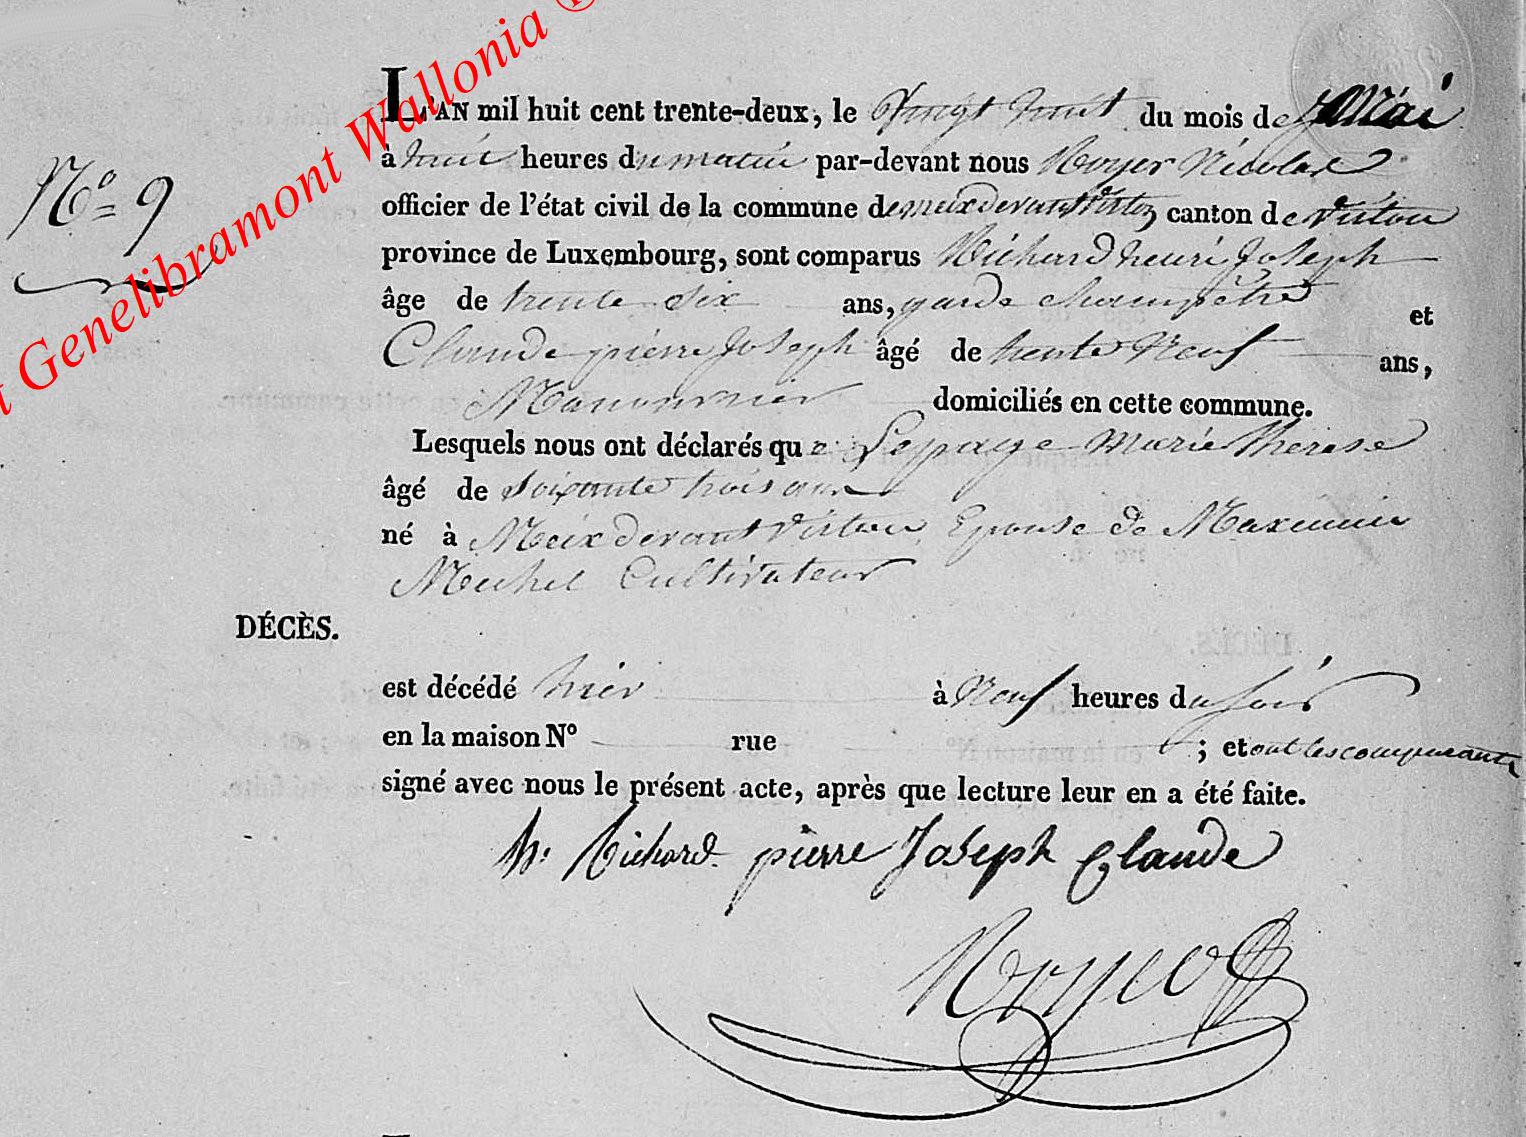 Genelibramont Wallonia ©
L'AN mil huit cent trente-deux, le Vingt huit du mois de Mai
N° 9
à huit heures du matin par-devant nous Royer Nicolas
officier de l'état civil de la commune de meix devant Virton canton de Virton
province de Luxembourg, sont comparus Richard henri Joseph
âge de trente six ans, garde champêtre et
Claude pierre Joseph âgé de trente Neuf ans,
Manouvrier domiciliés en cette commune.
Lesquels nous ont déclarés que Lepage Marie Therese
âgé de soixante trois ans
né à Meix devant Virton, Epouse de Maximin
Michel Cultivateur
DÉCÈS.
est décédé hier à Neuf heures du soir
en la maison N° rue ; et ont les comparants
signé avec nous le présent acte, après que lecture leur en a été faite.
h. Richard pierre Joseph Claude
Royer